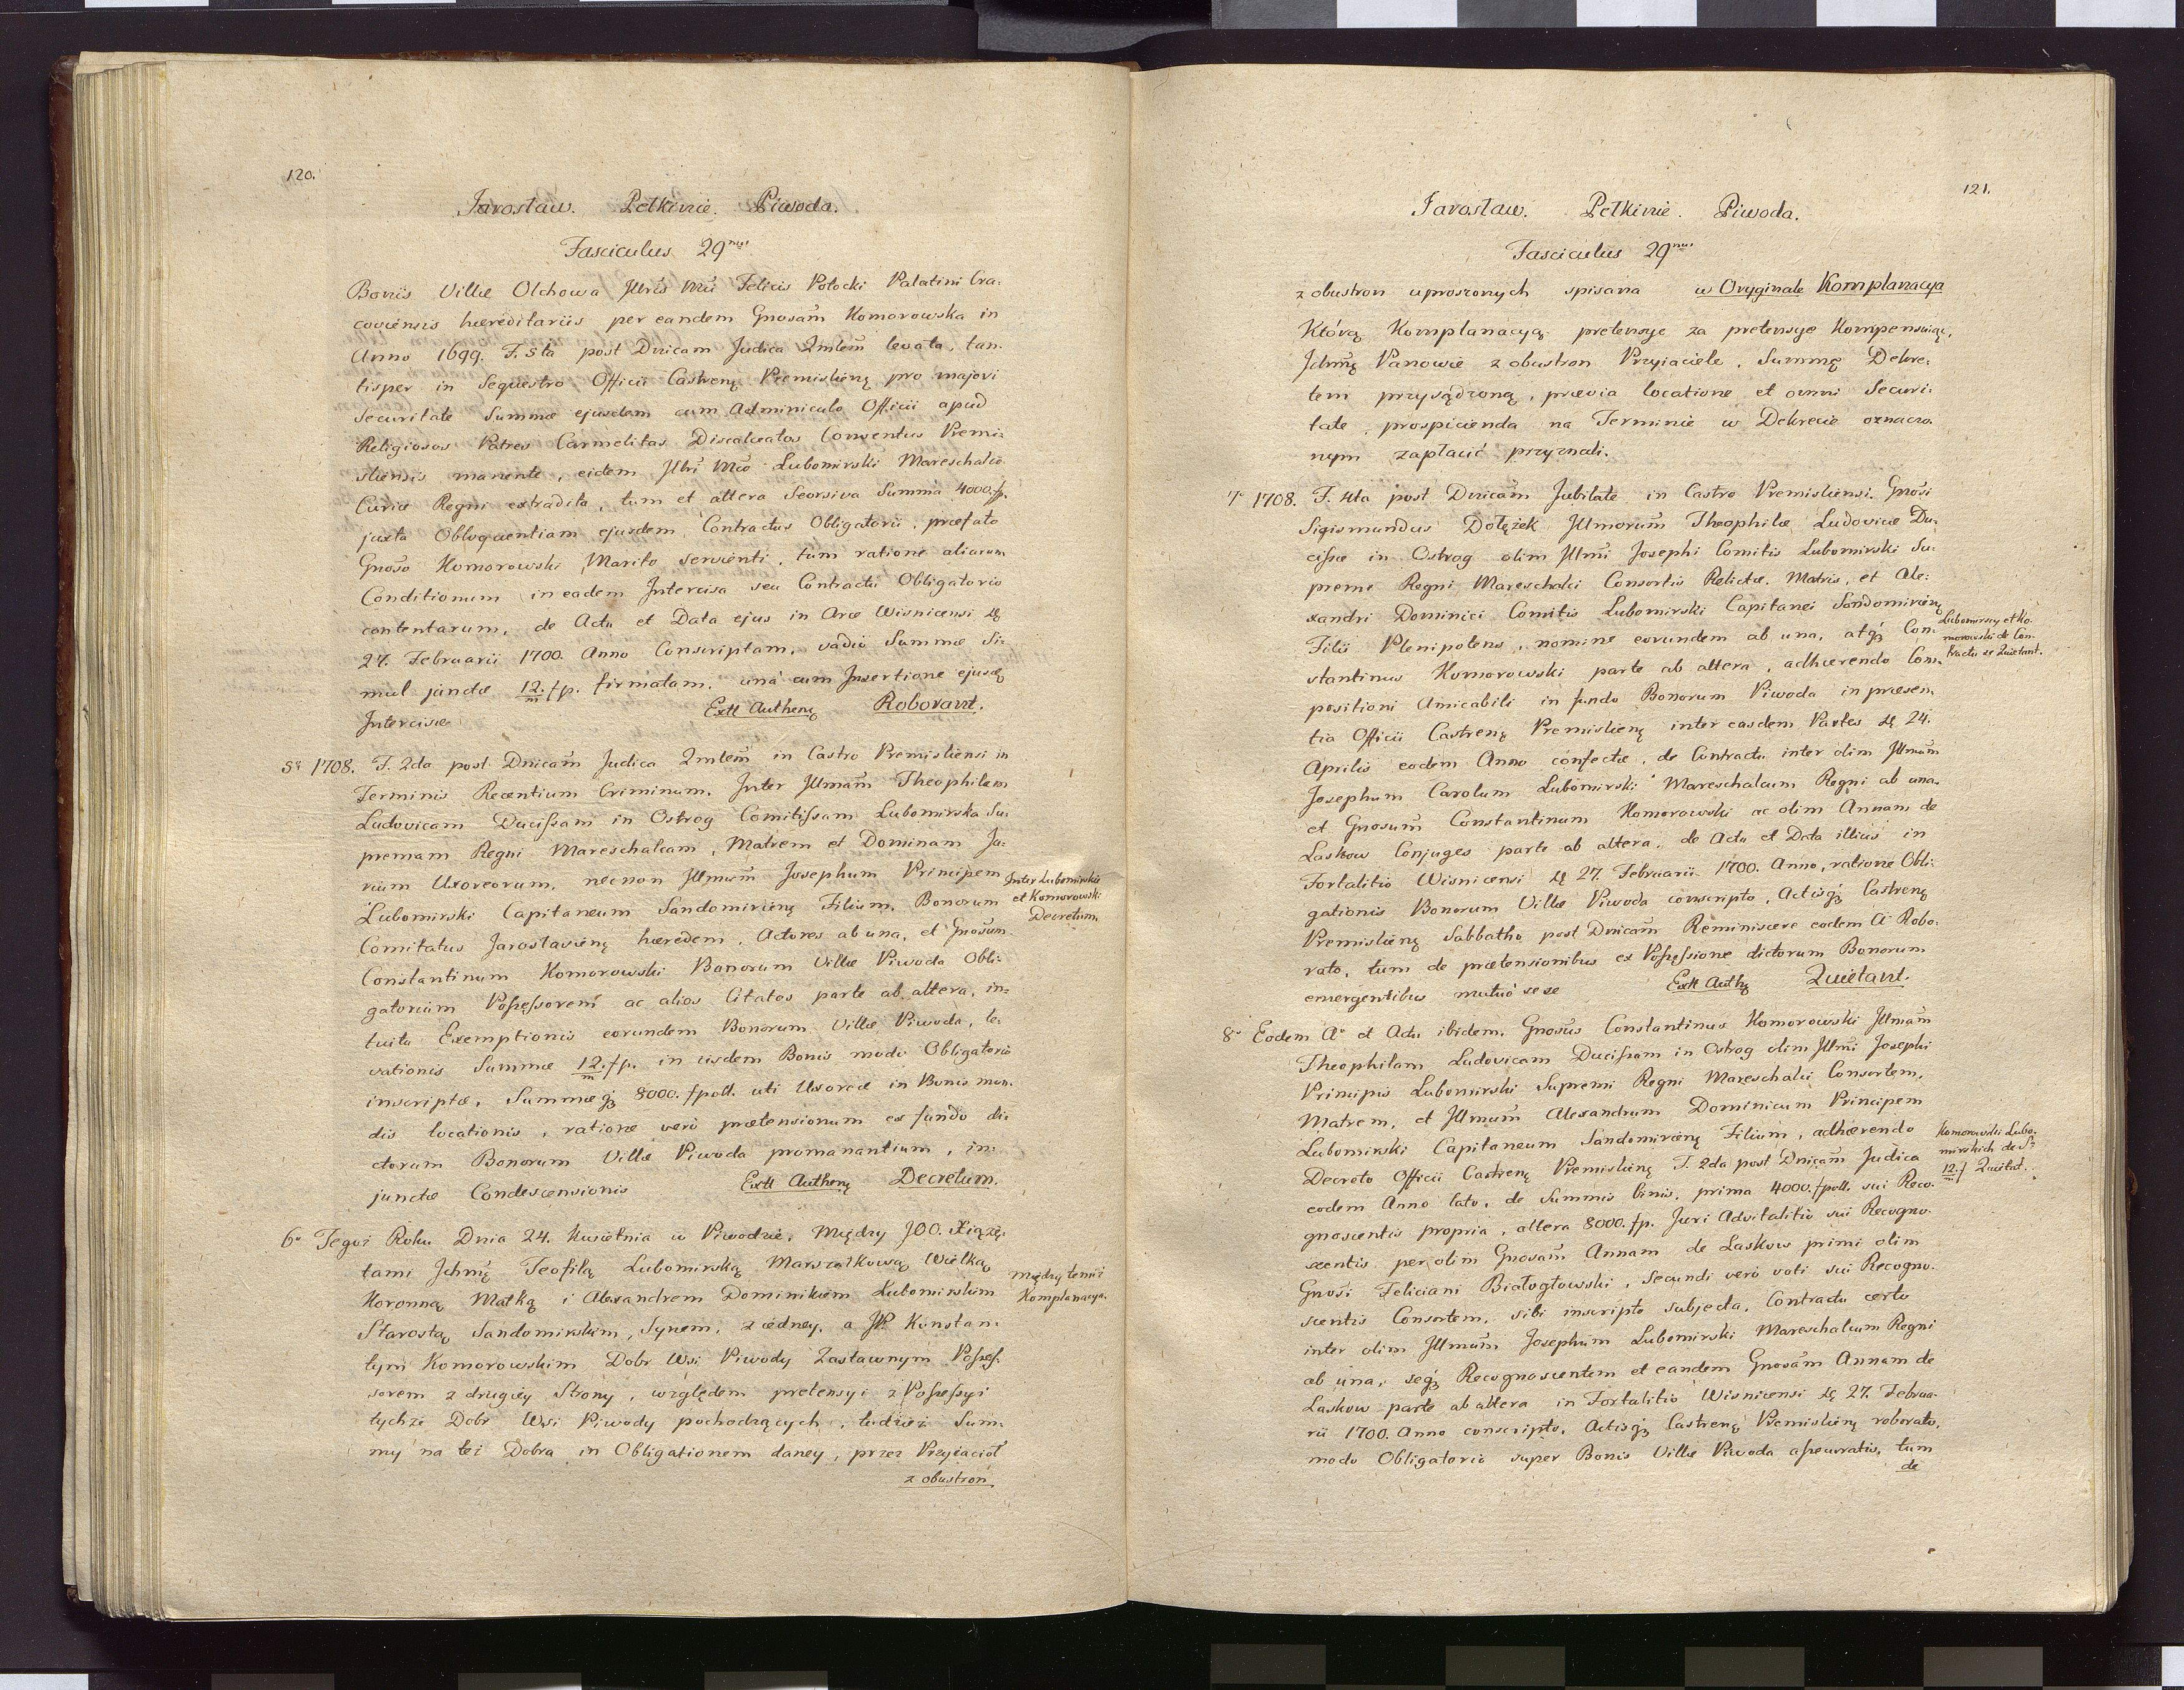 120.
Jarosław. Pełkinie. Piwoda.
Fasciculus 29nus
Boniis Villæ Olchowa Jllris Mci Felicis Potocki Palatini Cra:
coviensis hæreditariis per eandem Gnosam Komorowska in
Anno 1699. F. 5ta post Dnicam Judica Qmlem levata, tan:
tisper in Sequestro Officii Castren. Premislien. pro majori
Securitate Summæ ejusdem cum Adminiculo Officii apud
Religiosos Patres Carmelitas Discalceatos Conventus Premi:
sliensis manente, eidem Jllri Mco Lubomirski Mareschalco
Curiæ Regni extradita, tum et altera Seorsiva Summa 4000.fp.
juxta Obloquentiam ejusdem Contractus Obligatorii, præfato
Gnoso Komorowski Marito servienti, tum ratione aliarum
Conditionum in eadem Intercisa seu Contractu Obligatorio
contentarum, de Actu et Data ejus in Arce Wisnicensi de
27. Februarii 1700. Anno Conscriptam, vadio Summæ Si:
mul junctæ 12./m fp. firmatam, unà cum Insertione ejusd.
Intercisæ Extt Authen. Roborant.
5o 1708. F. 2da post Dnicam Judica Qmlem in Castro Premisliensi in
Terminis Recentium Criminum, Inter Jllmam Theophilam
Ludovicam Ducissam in Ostrog Comitissam Lubomirska Su:
premam Regni Mareschalcam, Matrem et Dominam Ju:
rium Uxoreorum, necnon Jllmum Josephum Principem
Lubomirski Capitaneum Sandomirien. Filium, Bonorum
Comitatus Jaroslavien. hæredem, Actores ab una, et Gnosum
Constantinum Komorowski Bonorum Villæ Piwoda Obli:
gatorium Possessorem ac alios Citatos parte ab altera, in:
tuitu Exemptionis eorundem Bonorum Villæ Piwoda, le:
vationis Summæ 12./m fp. in iisdem Bonis modo Obligatorio
inscriptæ, Summæq; 8000. fpoll. uti Uxoreæ in Bonis mun:
dis locationis, ratione verò prætensionum ex fundo di:
ctorum Bonorum Villæ Piwoda promanantium, in:
junctæ Condescensionis Extt Authen. Decretum.
Inter Lubomirskie
et Komorowski
Decretum.
6o Tegoż Roku Dnia 24. Kwietnia w Piwodzie, Między JOO. Xiążę:
tami Jchmę Teofilą Lubomirską Marszałkową Wielką
Koronną Matką i Alexandrem Dominikiem Lubomirskim
Starostą Sandomirskim, Synem, z iedney, a JP. Konstan:
tym Komorowskim Dobr Wsi Piwody Zastawnym Posses:
sorem z drugiey Strony, względem pretensyi z Possessyi
tychże Dobr Wsi Piwody pochodzących, tudzież Sum:
my na też Dobra in Obligationem daney, przez Przyiacioł
z obustron
Między temiż
Komplanacya.
121.
Jarosław. Pełkinie. Piwoda.
Fasciculus 29nus
z obustron uproszonych spisana w Oryginale Komplanacya
Którą Komplanacyą pretensye za pretensye Kompensuiąc,
Jchmę Panowie z obustron Przyiaciele, Summę Dekre:
tem przysądzoną, prævia locatione et omni Securi:
tate prospicienda na Terminie w Dekrecie oznaczo:
nym zapłacić przyznali.
7o 1708. F. 4ta post Dnicam Jubilate in Castro Premisliensi. Gnosi
Sigismundus Dołężek Jllmorum Theophilæ Ludovicæ Du:
cissæ in Ostrog olim Jllmi Josephi Comitis Lubomirski Su:
premi Regni Mareschalci Consortis Relictæ, Matris, et Ale:
xandri Dominici Comitis Lubomirski Capitanei Sandomirien.
Filii Plenipotens, nomine eorundem ab una, atq; Con:
stantinus Komorowski parte ab altera, adhærendo Com:
positioni Amicabili in fundo Bonorum Piwoda in præsen:
tia Officii Castren. Premislien. inter easdem Partes de 24.
Aprilis eodem Anno confectæ, de Contractu inter olim Jllmum
Josephum Carolum Lubomirski Mareschalcum Regni ab una,
et Gnosum Constantinum Komorowski ac olim Annam de
Laskow Conjuges parte ab altera, de Actu et Data illius in
Fortalitio Wisnicensi de 27. Februarii 1700. Anno, ratione Obli:
gationis Bonorum Villæ Piwoda conscripto, Actisq; Castren.
Premislien. Sabbatho post Dnicam Reminiscere eodem Ao Robo:
rato, tum de prætensionibus ex Possessione dictorum Bonorum
emergentibus mutuò sese Extt Auth. Quietant.
Lubomirscy et Ko:
morowski de Con:
tractu se Quietant.
8o Eodem Ao et Actu ibidem. Gnosus Constantinus Komorowski Jllmam
Theophilam Ludovicam Ducissam in Ostrog olim Jllmi Josephi
Principis Lubomirski Supremi Regni Mareschalci Consortem,
Matrem, et Jllmum Alexandrum Dominicum Principem
Lubomirski Capitaneum Sandomirien. Filium, adhærendo
Decreto Officii Castren. Premislien. F. 2da post Dnicam Judica
eodem Anno lato, de Summis binis, prima 4000. fpoll. sui Reco:
gnoscentis propria, altera 8000. fp. Juri Advitalitio sui Recogno:
scentis per olim Gnosam Annam de Laskow primi olim
Gnosi Feliciani Białogłowski, Secundi verò voti sui Recogno:
scentis Consortem, sibi inscripto subjecta, Contractu certo
inter olim Jllmum Josephum Lubomirski Mareschalcum Regni
ab una, seq; Recognoscentem et eandem Gnosam Annam de
Laskow parte ab altera in Fortalitio Wisnicensi de 27. Februa:
rii 1700. Anno conscripto, Actisq; Castren. Premislien. roborato,
modo Obligatorio super Bonis Villæ Piwoda assecuratis, tum
de
Komorowski Lubo:
mirskich de Sa
12./m f Quietat.